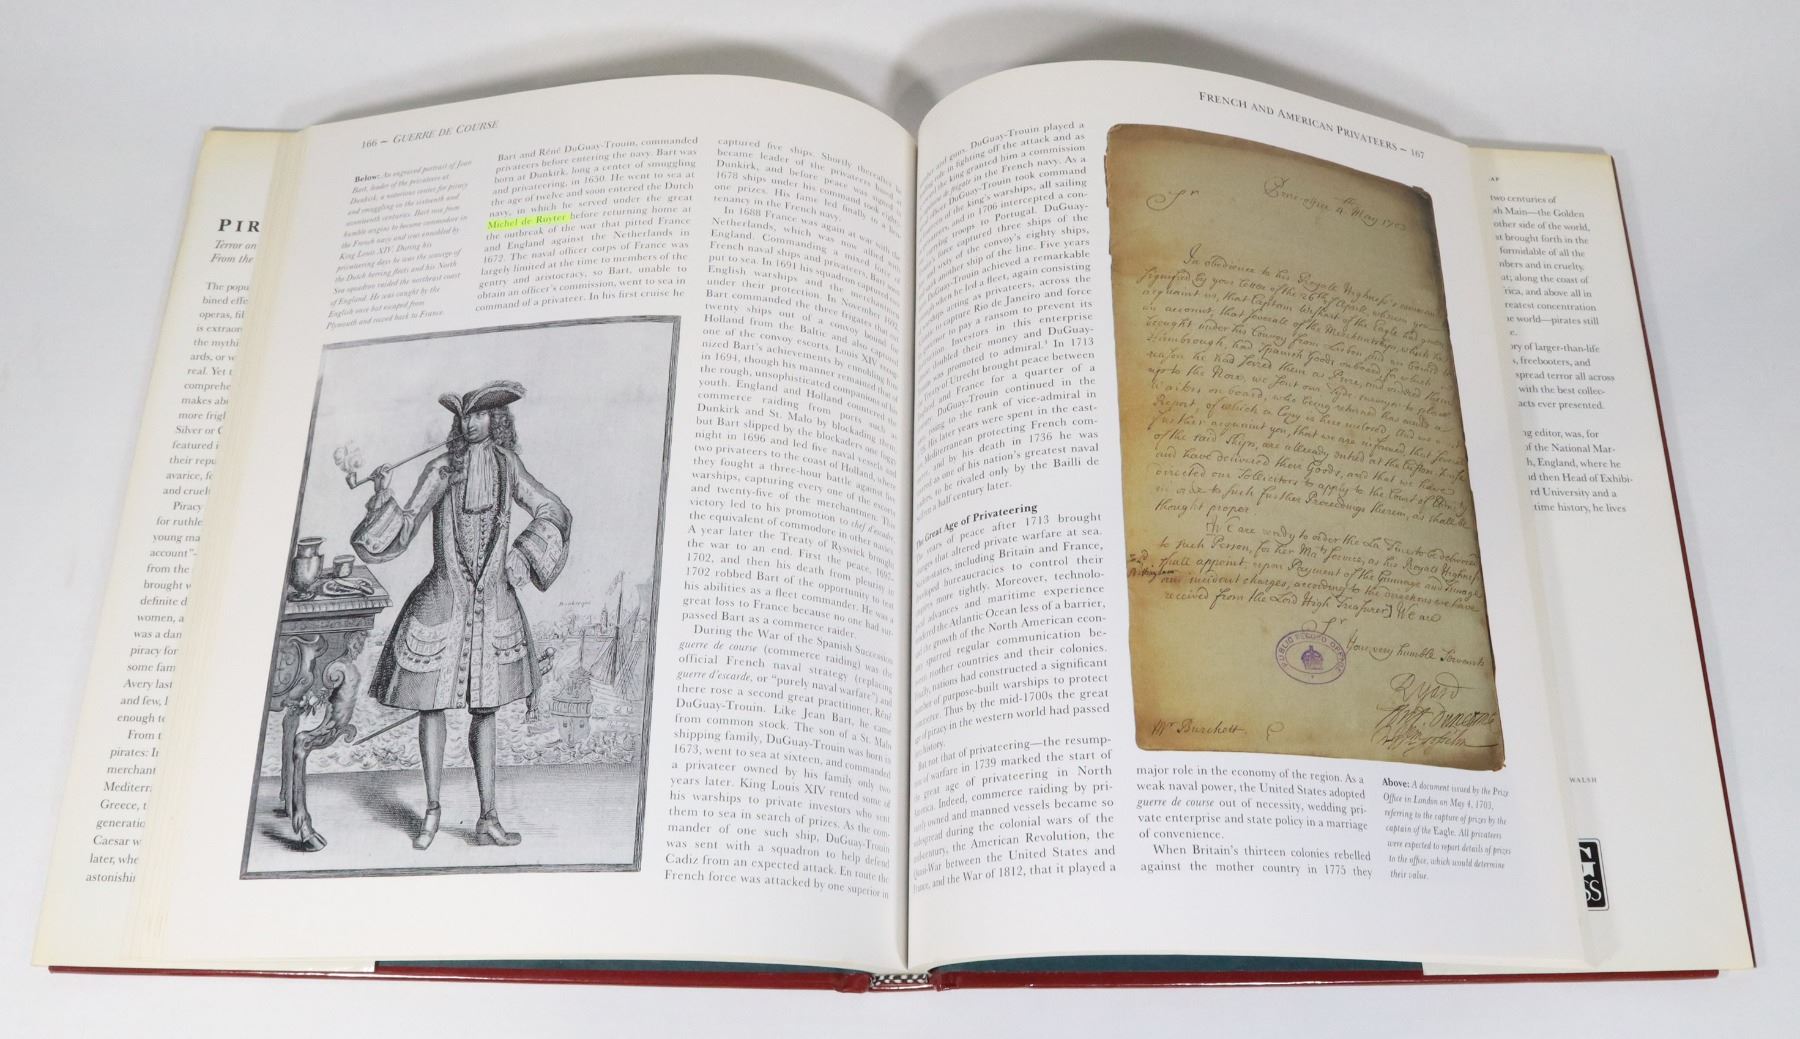 PIR
Terror on
From the
The popu
bined effe
operas, fil
is extraor
the mythi
ards, or w
real. Yet t
comprehe
makes abo
more frigh
Silver or C
featured i
their repu
avarice, fe
and cruel
Piracy
for ruthle
young ma
account"-
from the
brought w
definite d
women, a
was a dan
piracy for
some fam
Avery last
and few, l
enough to
From t
pirates: In
merchant
Mediterra
Greece, t
generatio
Caesar w
later, whe
astonishin
166 – GUERRE DE COURSE
Below: An engraved portrait of Jean
Bart, leader of the privateers at
Dunkirk, a notorious center for piracy
and smuggling in the sixteenth and
seventeenth centuries. Bart rose from
humble origins to become commodore in
the French navy and was ennobled by
King Louis XIV. During his
privateering days he was the scourge of
the Dutch herring fleets and his North
Sea squadron raided the northeast coast
of England. He was caught by the
English once but escaped from
Plymouth and rowed back to France.
Bart and Réné DuGuay-Trouin, commanded
privateers before entering the navy. Bart was
born at Dunkirk, long a center of smuggling
and privateering, in 1650. He went to sea at
the age of twelve and soon entered the Dutch
navy, in which he served under the great
Michel de Ruyter before returning home at
the outbreak of the war that pitted France
and England against the Netherlands in
1672. The naval officer corps of France was
largely limited at the time to members of the
gentry and aristocracy, so Bart, unable to
obtain an officer's commission, went to sea in
command of a privateer. In his first cruise he
captured five ships. Shortly thereafter he
became leader of the privateers based at
Dunkirk, and before peace was signed in
1678 ships under his command took eighty-
one prizes. His fame led finally to a lieu-
tenancy in the French navy.
In 1688 France was again at war with the
Netherlands, which was now allied with
England. Commanding a mixed force of
French naval ships and privateers, Bart soon
put to sea. In 1691 his squadron captured
English warships and the merchantmen
under their protection. In November 1692
Bart commanded the three frigates that took
twenty ships out of a convoy bound for
Holland from the Baltic and also captured
one of the convoy escorts. Louis XIV recog-
nized Bart's achievements by ennobling him
in 1694, though his manner remained that of
the rough, unsophisticated companions of his
youth. England and Holland countered the
commerce raiding from ports such as
Dunkirk and St. Malo by blockading them,
but Bart slipped by the blockaders one foggy
night in 1696 and led five naval vessels and
two privateers to the coast of Holland, where
they fought a three-hour battle against five
warships, capturing every one of the escorts
and twenty-five of the merchantmen. This
victory led to his promotion to chef d'escadre,
the equivalent of commodore in other navies.
A year later the Treaty of Ryswick brought
the war to an end. First the peace, 1697-
1702, and then his death from pleurisy in
1702 robbed Bart of the opportunity to test
his abilities as a fleet commander. He was a
great loss to France because no one had sur-
passed Bart as a commerce raider.
During the War of the Spanish Succession
guerre de course (commerce raiding) was the
official French naval strategy (replacing
guerre d'escarde, or "purely naval warfare") and
there rose a second great practitioner, Réné
DuGuay-Trouin. Like Jean Bart, he came
from common stock. The son of a St. Malo
shipping family, DuGuay-Trouin was born in
1673, went to sea at sixteen, and commanded
a privateer owned by his family only two
years later. King Louis XIV rented some of
his warships to private investors who sent
them to sea in search of prizes. As the com-
mander of one such ship, DuGuay-Trouin
was sent with a squadron to help defend
Cadiz from an expected attack. En route the
French force was attacked by one superior in
FRENCH AND AMERICAN PRIVATEERS – 167
guns. DuGuay-Trouin played a
in fighting off the attack and as
the king granted him a commission
frigate in the French navy. As a
DuGuay-Trouin took command
of the king's warships, all sailing
and in 1706 intercepted a con-
troops to Portugal. DuGuay-
force captured three ships of the
the convoy's eighty ships,
another ship of the line. Five years
DuGuay-Trouin achieved a remarkable
he led a fleet, again consisting
ships acting as privateers, across the
to capture Rio de Janeiro and force
to pay a ransom to prevent its
Investors in this enterprise
doubled their money and DuGuay-
was promoted to admiral. In 1713
of Utrecht brought peace between
and France for a quarter of a
DuGuay-Trouin continued in the
to the rank of vice-admiral in
His later years were spent in the east-
Mediterranean protecting French com-
and by his death in 1736 he was
as one of his nation's greatest naval
he rivaled only by the Bailli de
a half century later.
The Great Age of Privateering
years of peace after 1713 brought
that altered private warfare at sea.
states, including Britain and France,
bureaucracies to control their
more tightly. Moreover, technolo-
advances and maritime experience
the Atlantic Ocean less of a barrier,
the growth of the North American econ-
spurred regular communication be-
mother countries and their colonies.
nations had constructed a significant
of purpose-built warships to protect
Thus by the mid-1700s the great
of piracy in the western world had passed
history.
But not that of privateering—the resump-
of warfare in 1739 marked the start of
great age of privateering in North
America. Indeed, commerce raiding by pri-
owned and manned vessels became so
during the colonial wars of the
century, the American Revolution, the
Quasi-War between the United States and
France, and the War of 1812, that it played a
Sr.
Prize office 4th May 1703
In obedience to his Royall Highness's
signified by your Letter of the 26th of Aprill, wherein you
acquaint us, that Captain of the Eagle has given
an account, that severall of the Merchantships, which he
brought under his Convoy from Lisbon
had Spanish Goods onboard, for which
reason he had seized them as Prize, and
up to the Nore, we sent our Surveyor to place
Waiters on board, who being returned has made a
Report, of which a Copy is here inclosed, And we
further acquaint you, that we are informed, that severall
of the said Ships, are allready
and have delivered their Goods, and that we have
directed our Sollicitors to apply to the Court of
in order to such further Proceedings therein, as shall be
thought proper.
We are ready to order the to be delivered
to such Person, for her Mats Service, as his Royall Highness
shall appoint, upon Payment of the
and incident charges, according to the directions we have
received from the Lord High Treasurer] We are
Sr
Your very humble Servants
PUBLIC RECORD OFFICE
Mr Burchett.
major role in the economy of the region. As a
weak naval power, the United States adopted
guerre de course out of necessity, wedding pri-
vate enterprise and state policy in a marriage
of convenience.
When Britain's thirteen colonies rebelled
against the mother country in 1775 they
Above: A document issued by the Prize
Office in London on May 4, 1703,
referring to the capture of prizes by the
captain of the Eagle. All privateers
were expected to report details of prizes
to the office, which would determine
their value.
two centuries of
sh Main—the Golden
other side of the world,
at brought forth in the
formidable of all the
mbers and in cruelty.
at; along the coast of
rica, and above all in
reatest concentration
he world—pirates still
e.
ory of larger-than-life
s, freebooters, and
spread terror all across
with the best collec-
acts ever presented.
ng editor, was, for
of the National Mar-
h, England, where he
nd then Head of Exhibi-
rd University and a
time history, he lives
WALSH